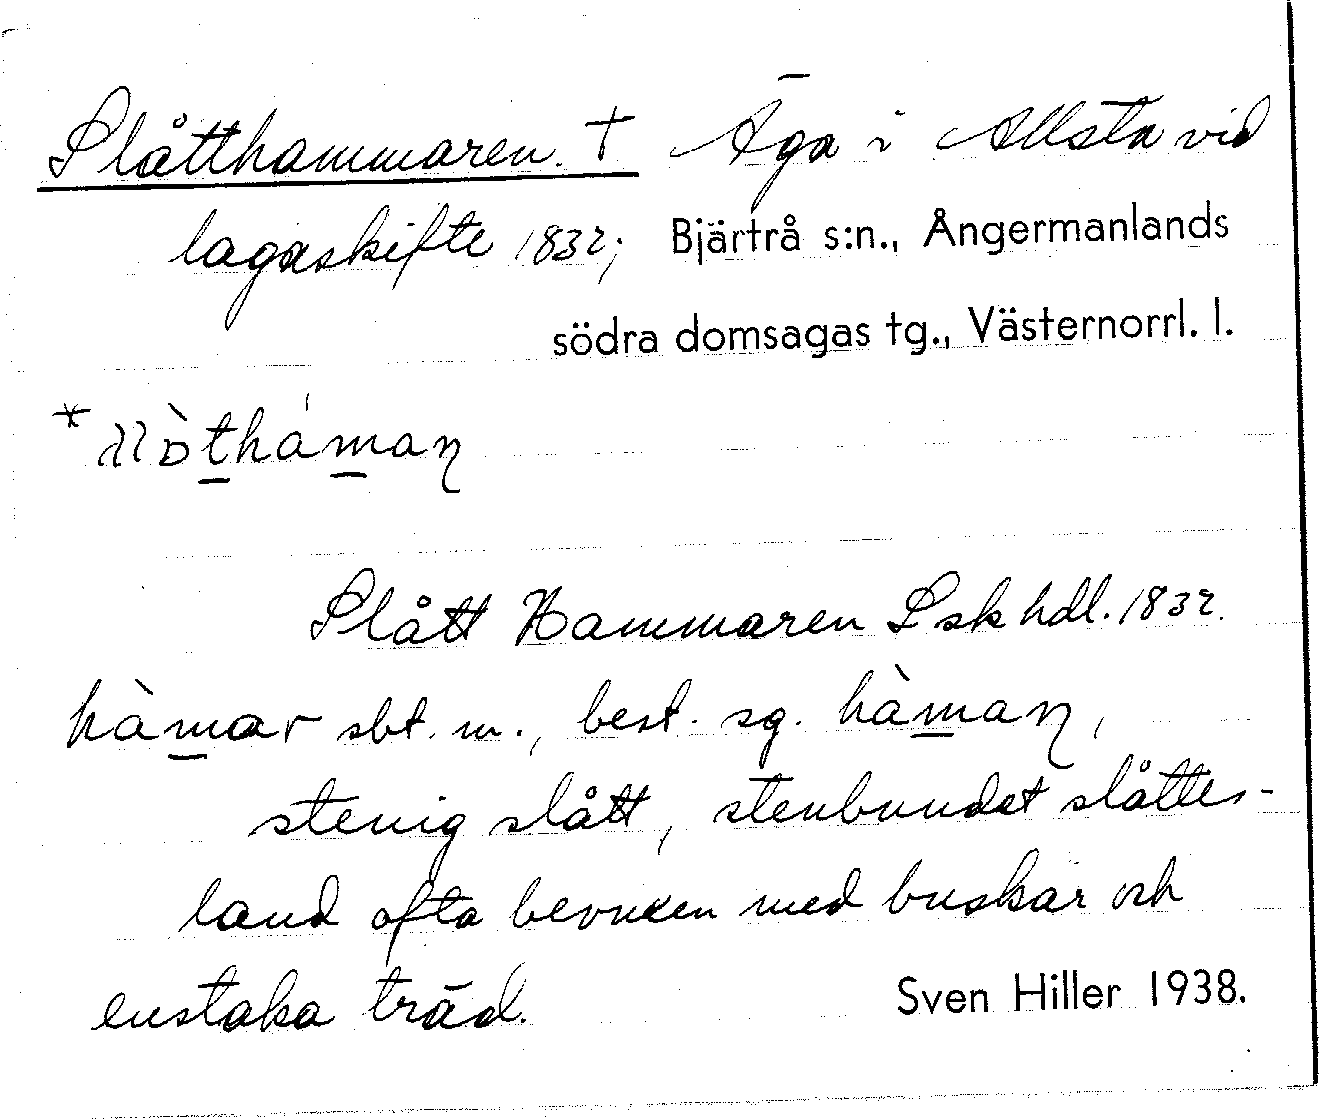 Slåtthammaren. † Äga i Allsta vid
lagaskifte 1832; Bjärtrå s:n., Ångermanlands
södra domsagas tg., Västernorrl. l.
Slått Hammaren Lskhdl. 1832.
hàmar sbt. m., best. sg. hàmaɳ,
stenig slått, stenbundet slåtter-
land ofta bevuxen med buskar och
enstaka träd. Sven Hiller 1938.